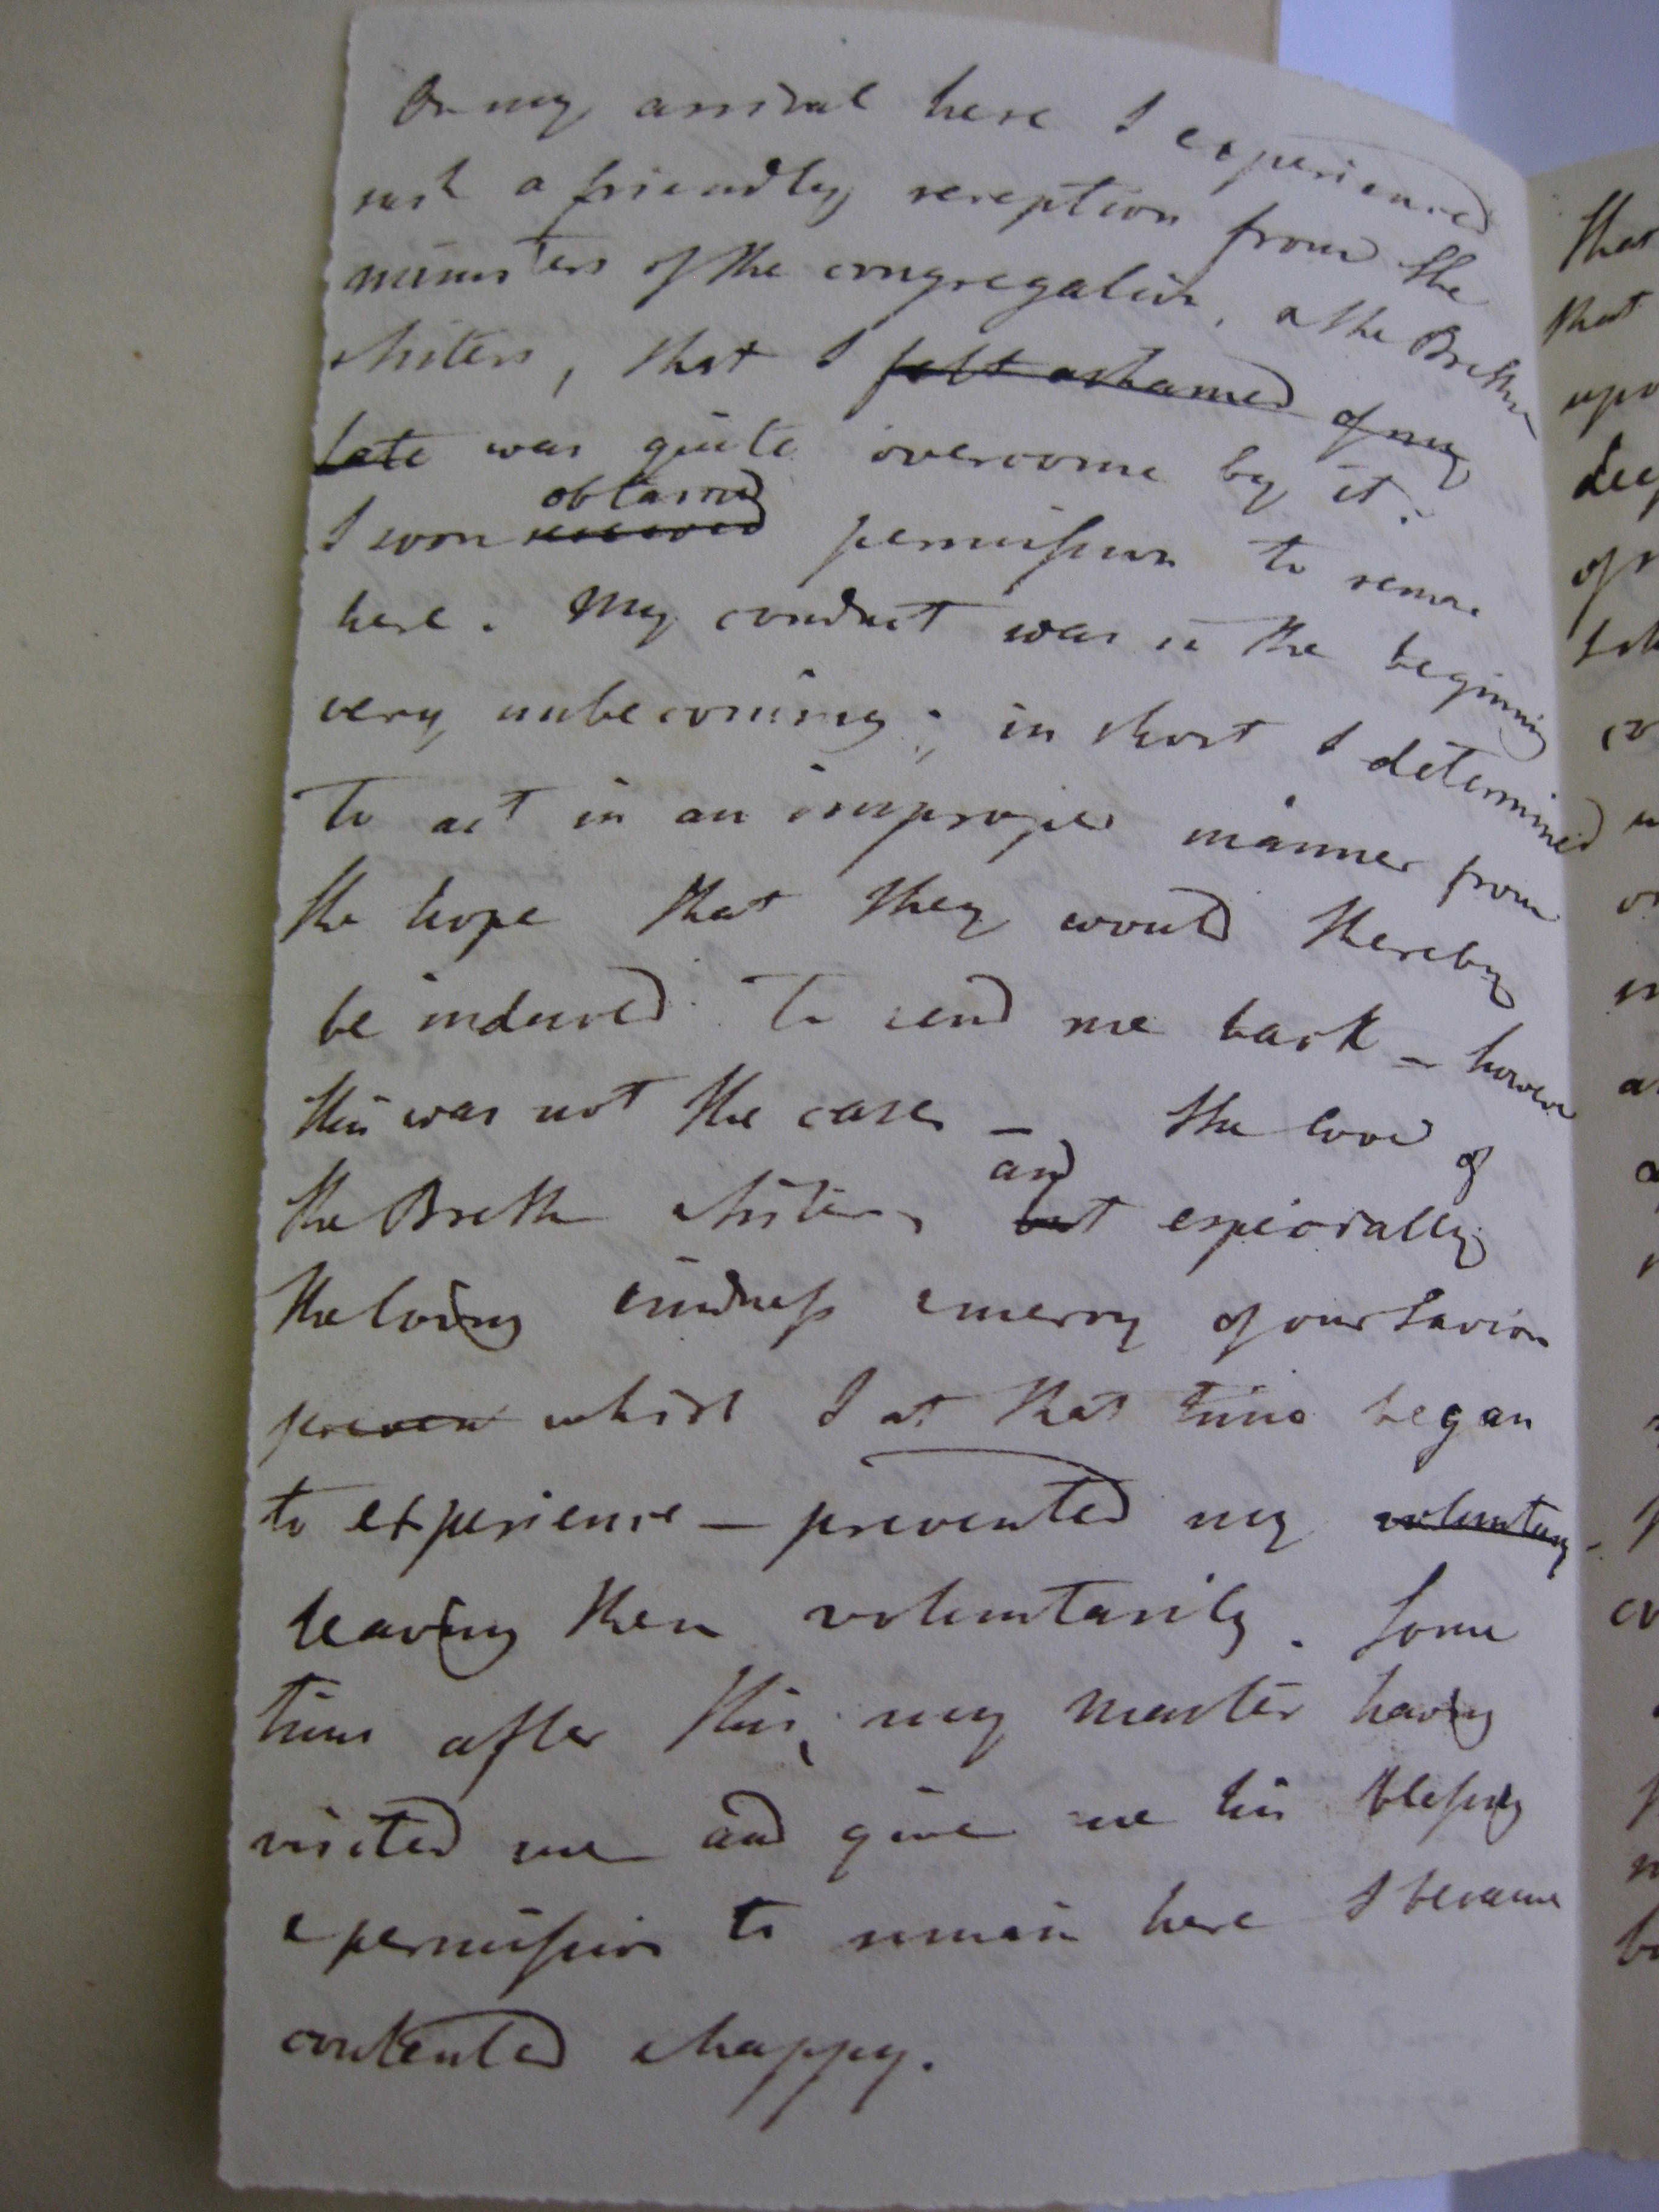 On my arrival here I experienced
such a friendly reception from the
ministers of the congregation, & the Brethn
& Sisters, that I felt ashamed of my
late was quite overcome by it.
I soon received obtained permission to remove
here. My conduct was in the beginning
very unbecoming; in short I determined
to act in an improper manner from
the hope that they would thereby
be induced to send me back – however
this was not the case – the love of
the Breth & Sisters, but and especially
the loving kindness & mercy of our Savior
preven which I at that time began
to experience – prevented my voluntary
leaving them voluntarily. Some
time after this, my Master having
visited me and give me his blessing
& permission to remain here I became
contented & happy.
that
that
upo
deep
of